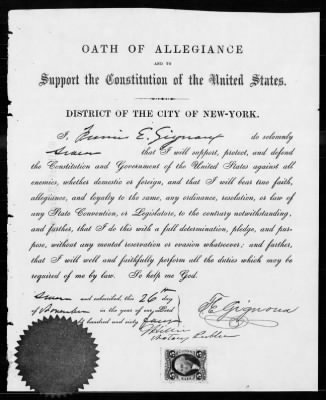 OATH OF ALLEGIANCE
AND TO
Support the Constitution of the United States.
DISTRICT OF THE CITY OF NEW-YORK.
I, E. Gignoux do solemnly
swear that I will support, protect, and defend
the Constitution and Government of the United States against all
enemies, whether domestic or foreign, and that I will bear true faith,
allegiance, and loyalty to the same, any ordinance, resolution, or law of
any State Convention, or Legislature, to the contrary notwithstanding,
and further, that I do this with a full determination, pledge, and pur-
pose, without any mental reservation or evasion whatsoever; and further,
that I will well and faithfully perform all the duties which may be
required of me by law. So help me God.
Sworn and subscribed, this 26th day
of November in the year of our Lord
hundred and sixty four
Gignoux
Notary Public